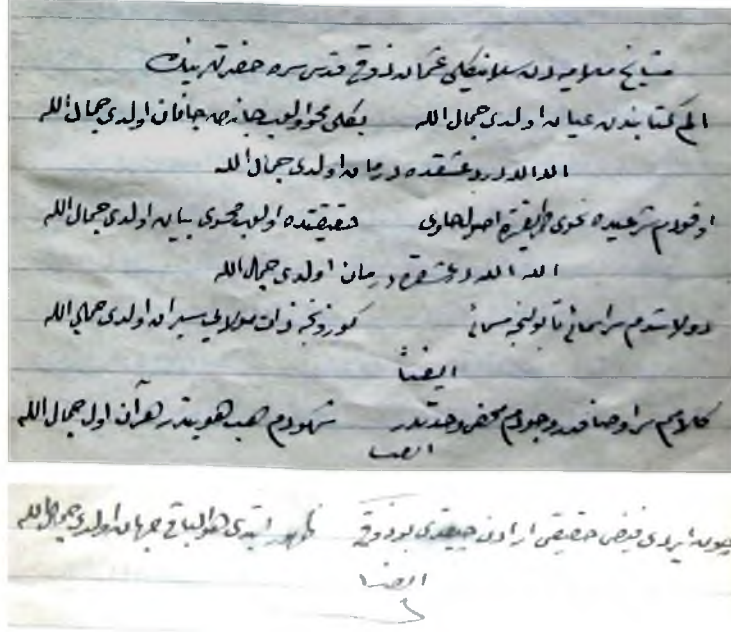 مشايخ ملاميه دن سلانيكلى عثمان ذوقى قدس سره حضرتلرينك
الم كتابندن عيان اولدى جمال الله بكلى محو اولوب جانده جانان اولدى جمال الله
الله الله درد عشقده درمان اولدى جمال الله
اوقودم شرعيده نحوى طريقتده اصول حاوى حقيقتده اولوب محوى بيان اولدى جمال الله
الله الله درد عشقده درمان اولدى جمال الله
دولاشدم سر اسمائى تا بولنجه مسمائى كورونجه ذات مولايى سيران اولدى جمال الله
ايضاً
كلامم سر اوصافدر وجودم محض وحدتدر شهودم هب هويتدر هرآن اولدى جمال الله
ايضا
ايردى فيض حقيقى ارادن چيقدى بو ذوقى ظهور ايتدى هو الباقى جهان اولدى جمال الله
ايضا